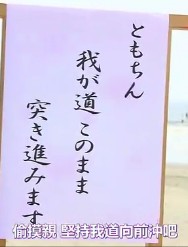 ともちん
我が道 このまま
突き進みます
偷摸親 堅持我道向前沖吧